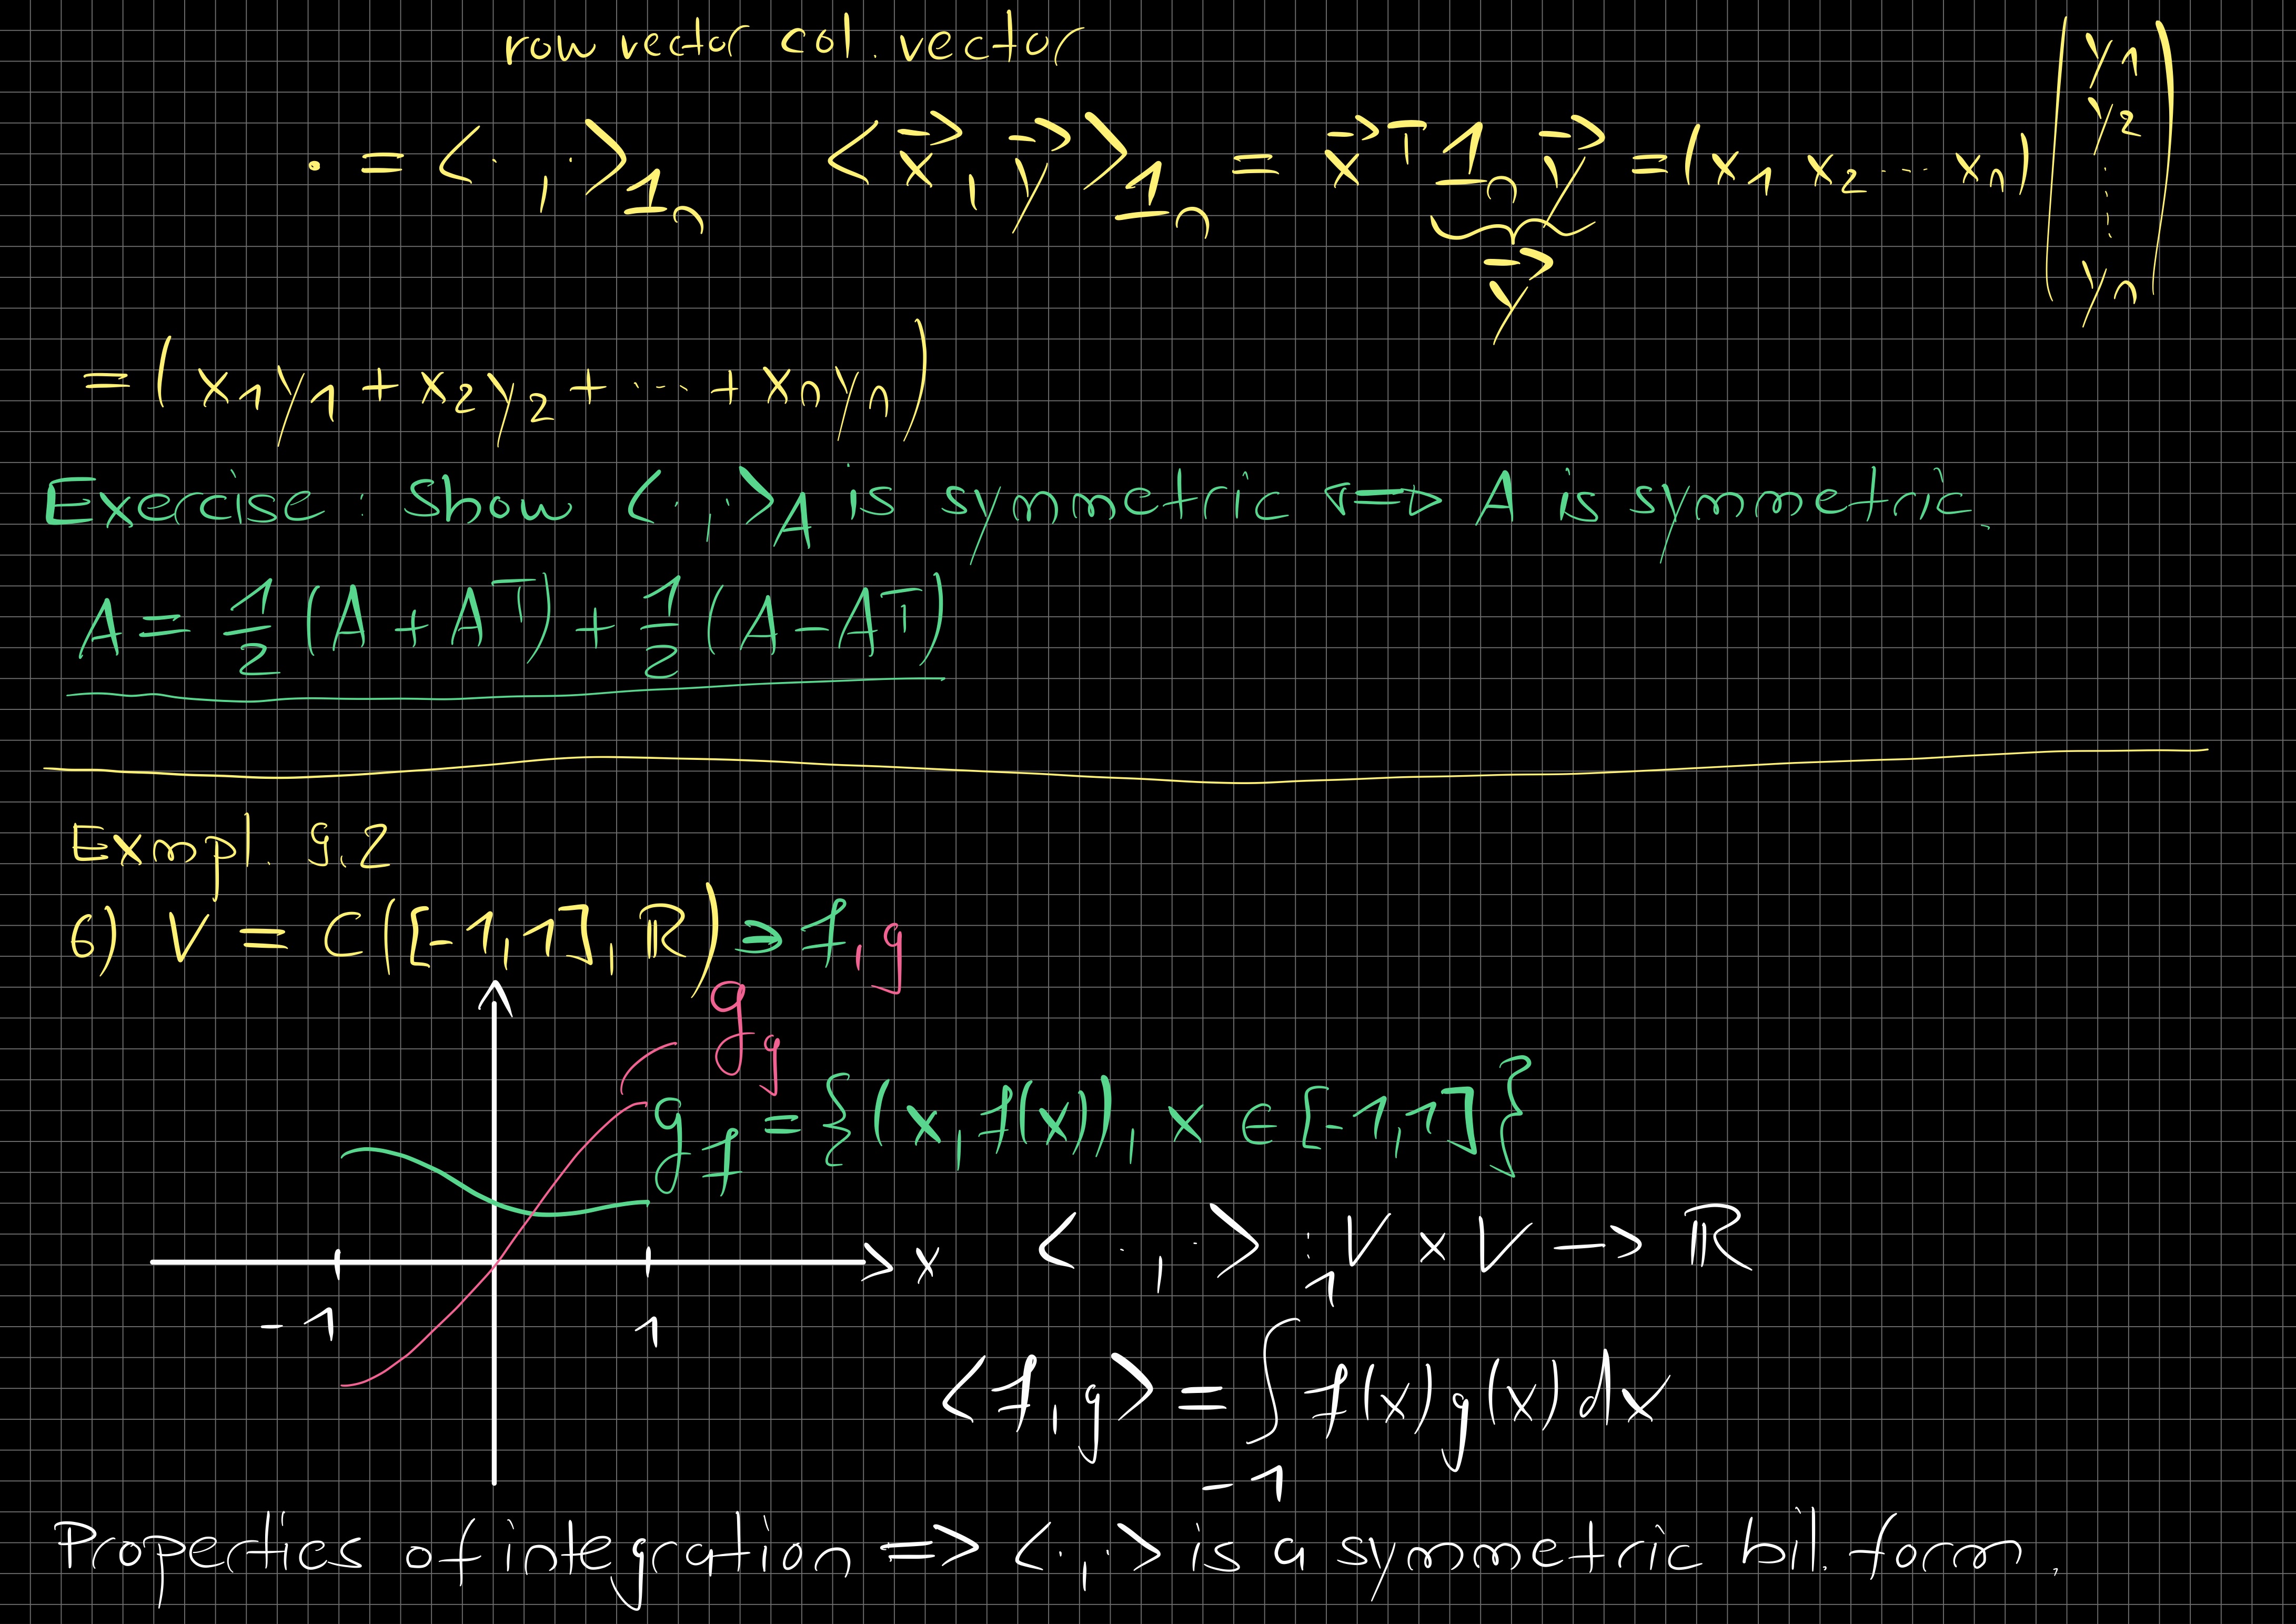 row vector col. vector
· = <·,·>_{1_n}   <x⃗, y⃗>_{1_n} = x⃗^T 1_n y⃗ = (x_1 x_2 ... x_n) (y_1 y_2 ⋮ y_n)
y⃗
= (x_1 y_1 + x_2 y_2 + ... + x_n y_n)
Exercise: show <·,·>_A is symmetric <=> A is symmetric.
A = 1/2 (A + A^T) + 1/2 (A - A^T)
Exmpl. 9.2
6) V = C([-1,1], ℝ) ∋ f, g
g_g
g_f = {(x, f(x)), x ∈ [-1,1]}
x
-1 1
<·,·> : V x V → ℝ
<f,g> = ∫_{-1}^{1} f(x) g(x) dx
Properties of integration => <·,·> is a symmetric bil. form.